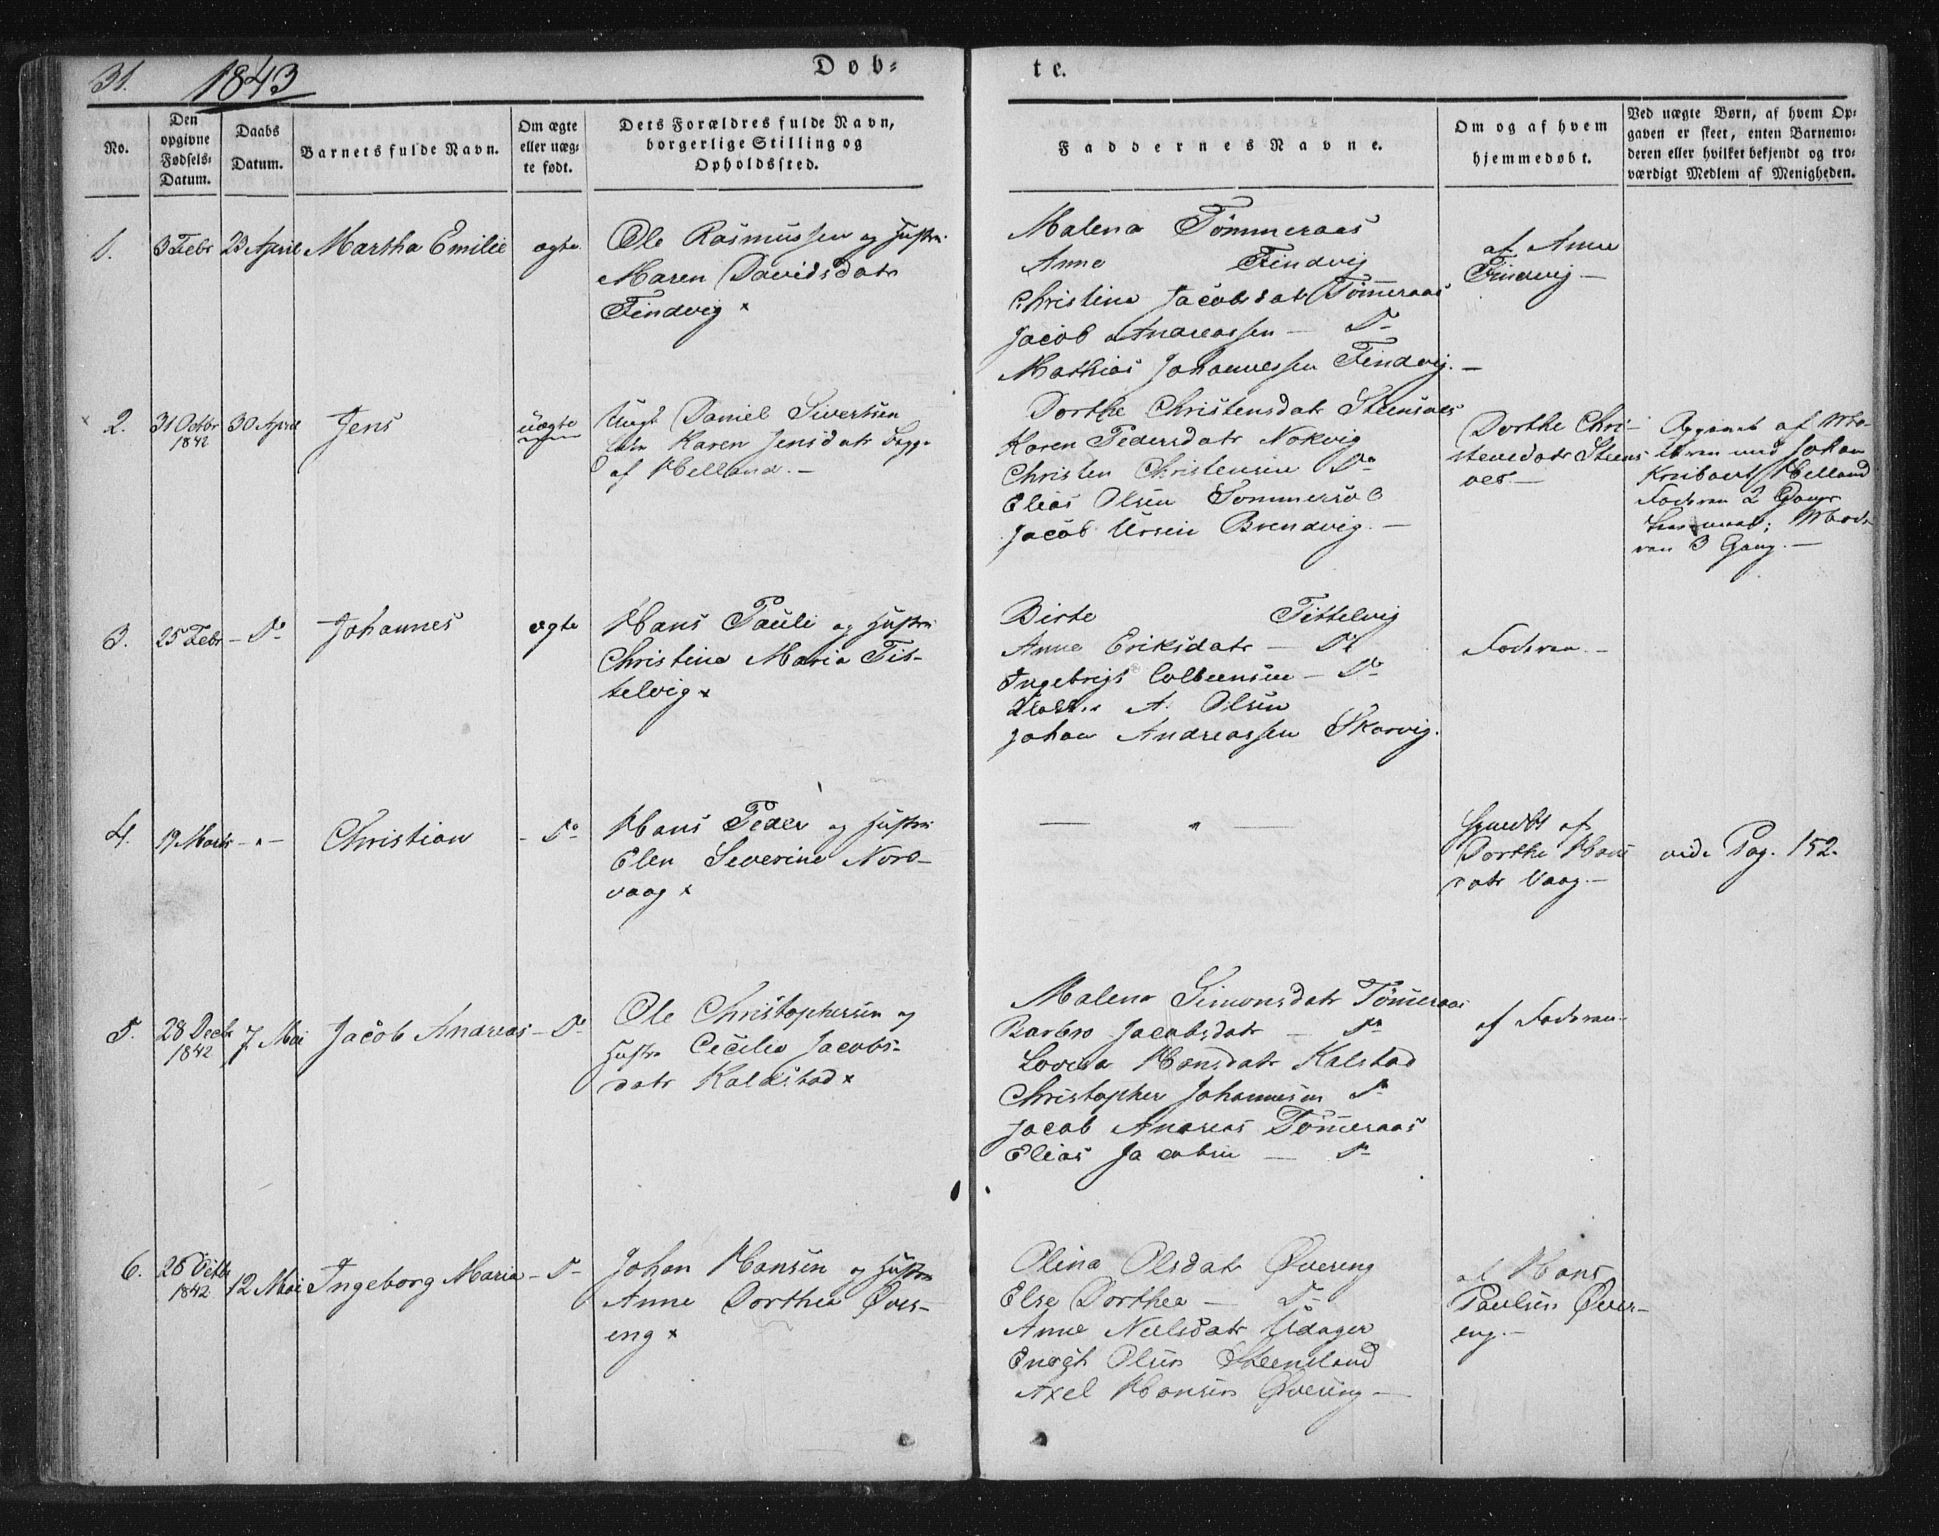 31. 1843
Dob-
te.
No.
Den opgivne Fødsels-Datum.
Daabs Datum.
Barnets fulde Navn.
Om ægte eller uægte født.
Dets Forældres fulde Navn, borgerlige Stilling og Opholdssted.
Faddernes Navne.
Om og af hvem hjemmedøbt.
Ved uægte Børn, af hvem Opgaven er skeet, enten Barnemoderen eller hvilket bekjendt og troværdigt Medlem af Menigheden.
1. 3 Febr 23 April Martha Emilie ægte
Ole Rasmussen og Hustru
Maren Davidsdatr
Findvig x
Malena Tømmeraas
Anne Findvig
Christine Jacobsdatr Tømmeraas
Jacob Andreassen — Do
Mathias Johannessen Findvig. —
af Anne
Findvig —
2. 31 Octbr 1842 30 April Jens uægte
Ungk Daniel Sivertsen
Karen Jensdatr
af Helland. —
Dorthe Christensdatr Steensoes
Karen Pedersdatr Nokvig
Christen Christensen Do
Elias Olsen Sommersø
Jacob Ursin Brendvig. —
Dorthe Christensdatr Steensoes —
af Moderen med Johan
Helland
Faderen 2 Gang
Moderen 3 Gang. —
3. 25 Febr — Do Johannes ægte
Hans Pauli og Hustru
Christine Maria Tittelvig x
Birte Tittelvig
Anne Eriksdatr — Do
Ingebrigt — Do
A. Olsen
Johan Andreassen Skarvig.
Faderen. —
4. 19 Marts — " — Christian — Do
Hans Peder og Hustru
Elen Severine Nordvaag x
— " —
af
Dorthe Hansdatr Vaag. —
vide Pag. 152.
5. 28 Decbr 1842 7 Mai Jacob Andreas — Do
Ole Christophersen og
Hustru Cecilia Jacobsdatr Kaldstad x
Malena Simonsdatr Tømmeraas
Barbro Jacobsdatr — Do
Lovisa Hansdatr Kalstad
Christopher Johannesen Do
Jacob Andreas Tømmeraas
Elias Jacobsen — Do
af Faderen. —
6. 28 Octbr 1842 12 Mai Ingeborg Maria — Do
Johan Hansen og Hustru
Anne Dorthea Øvereng x
Olina Olsdatr Øvereng
Else Dorthea — Do
Anne Nielsdatr Udager
Olsen Steensland
Axel Hansen Øvereng —
af Hans
Paulsen Øvereng. —